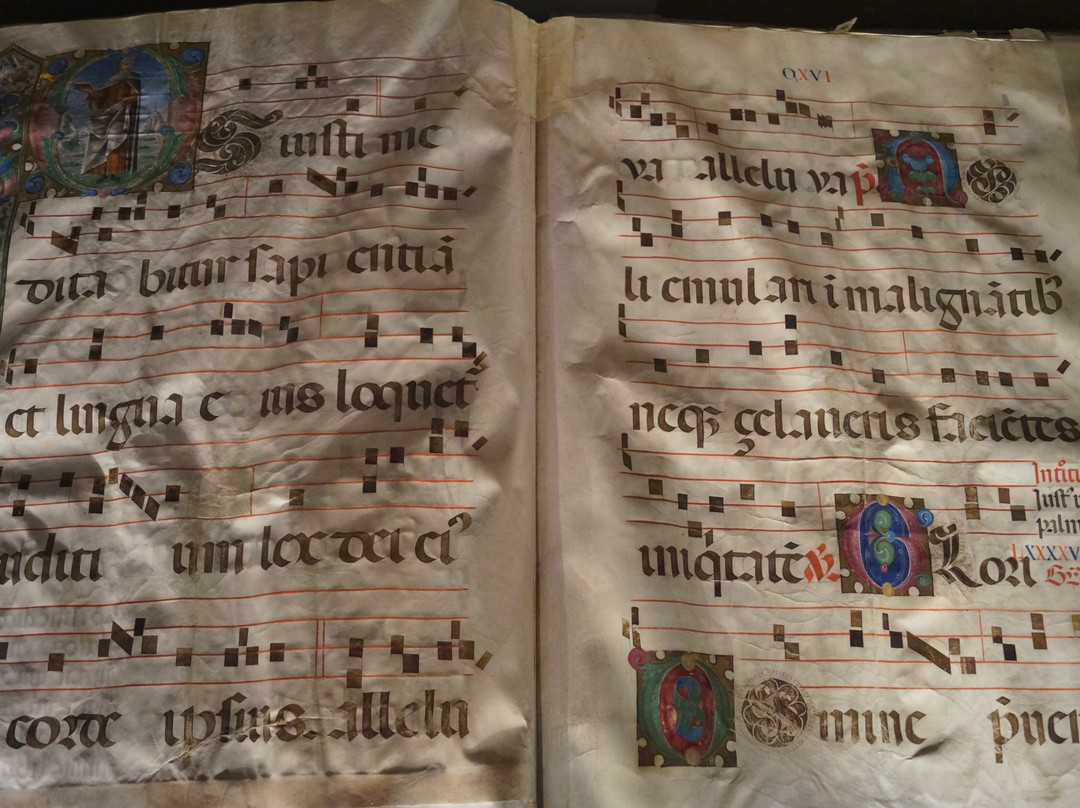 OS iusti me
dita bitur sapi entiã
et lingua e ius loquet̃
iuditi um lex dei eiꝰ
corde ipsius. allelu
CXVI
ya allelu ya p̃ NO
li emulari ĩ malignãtibꝰ
neqꝫ çelaueris faciẽtes
iniq̃tatẽ Glori
Just' u
palm
LXXXXV
DO mine p̃ue